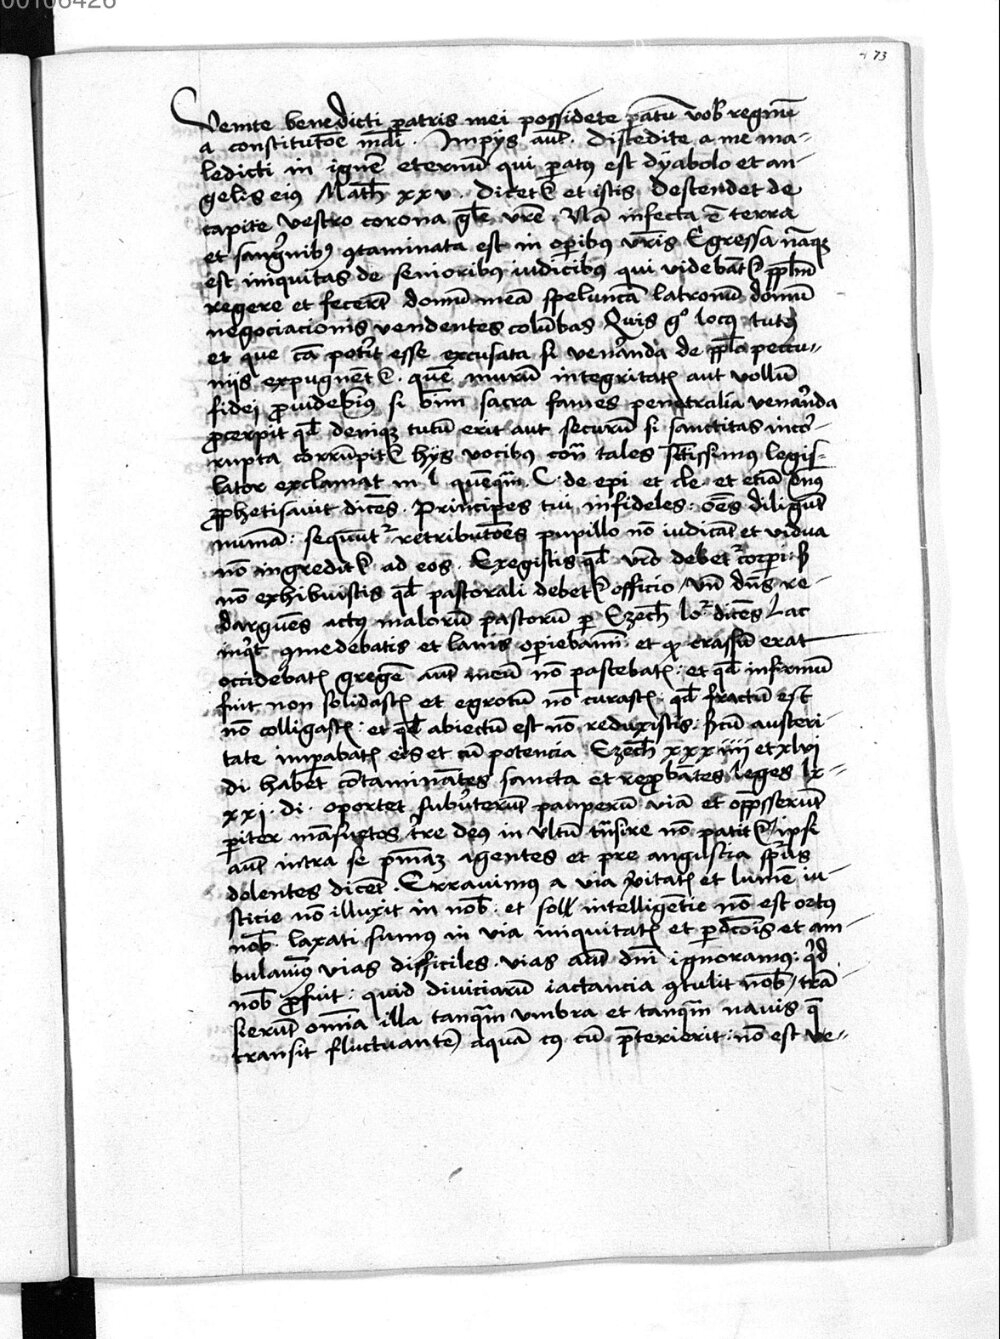 00106426
73
Venite benedicti patris mei possidete paratū vob̄ regnū
a constitutōe mūdi . Impijs aūt . Discedite a me ma-
ledicti in ignē eternū qui paratꝰ est dyabolo et an-
gelis eiꝰ Math xxv . Dicetᷣ et istis Descendet de
capite vestro corona glē vrē . Nā infecta ē terra
et sangᷣnibꝫ ꝯtaminata est in operibꝰ vris Egressa nāqꝫ
est iniquitas de senioribꝰ iudicibꝰ qui videbātᷣ pplm̄
regere et fecerūt domū meā speluncā latronū domū
negociacionis vendentes colūbas Quis gͦ locꝰ tutꝰ
et que cā poterit esse excusata si venerāda de pplā peccu-
nijs expugnētᷣ . quē murū integritatis aut vallū
fidei ꝓuidebimꝰ si sacra fames penetralia venerāda
ꝓcerpit qd̄ deniqꝫ tutū erit aut securū si sanctitas incor-
rupta corrūpitᷣ hijs vocibꝰ tales sctissimus legis-
lator exclamat in l queqm̄ . C . de epi et cle . et etiā dn̄s
ꝓphetisauit dicēs . Principes tui infideles : oēs diligūt
munā : sequūtᷣ retributōes pupillo nō iudicāt et vidua
nō ingreditᷣ ad eos . Exegistis qd̄ vrō debetᷣ corpi : s
nō exhibuistis qd̄ pastorali debetᷣ officio / vn̄ dn̄s re-
darguēs actꝰ malorū pastorū per Ezech loᷣ dicēs Lac
inqͥt ꝯmedebatis et lanis operiebamī et qᷓ crassū erat
occidebatis gregē aūt meū nō pascebatis : et qd̄ infirmū
fuit non solidastis et egrotū nō curastis : qd̄ fractū est
nō colligastis : et qd̄ abiectū est nō reduxistis : s cū austeri-
tate impabatis eis et cū potencia Ezech xxxiiij et xlvi
di habēt cōtaminātes sancta et reprobātes leges lx-
xxj . di . oportet subuterūt pauperū viā et oppsserūt
piter māsuetos tre deꝰ in vltū trāsire nō patitᷣ ipsi
aūt intra se pnīaꝫ agentes et pre angustia spūs
dolentes dicēt . Errauimꝰ a via veritatis et lumē iu-
sticie nō illuxit in nob̄ . et soll intelligētie nō est ortꝰ
nob̄ . laxati sumꝰ in via iniquitatis et perdicōis et am-
bulauimꝰ vias difficiles . vias aūt dnī ignoramꝰ : qͥd
nob̄ ꝓfuit : quid diuiciarū iactancia ꝯtulit nob̄ / trā
sierūt omīa illa tanqm̄ vmbra et tanqm̄ nauis qē
transit fluctuantē aquā cꝰ cū preterierit : nō est ve-